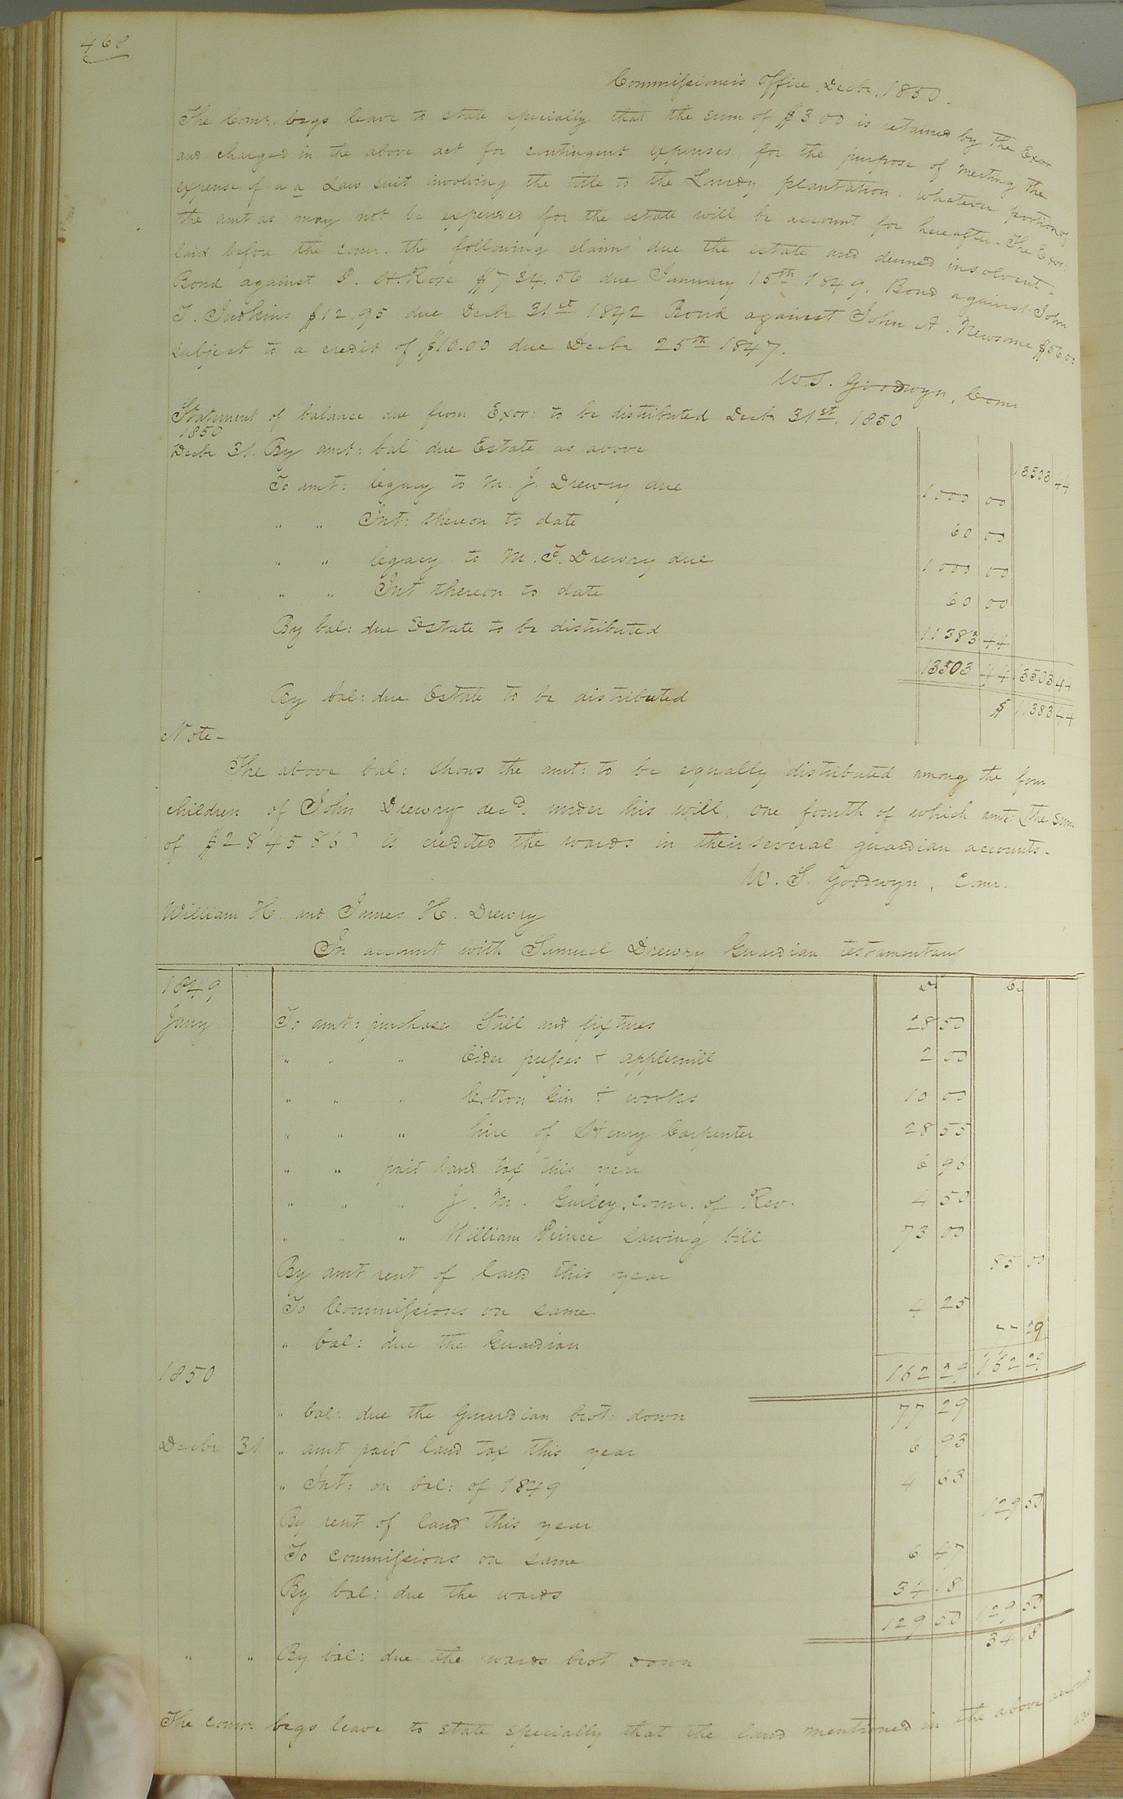 468
Commissioner's Office, Decbr. 1850.
The Comr. begs leave to state specially that the sum of $300 is retained by the Exor
and charged in the above act for contingent expenses for the purpose of meeting the
expense of a a Law suit involving the title to the Lundy plantation. whatever portion of
the amt as may not be expended for the estate will be account for hereafter. The Exor:
laid before the comr. the following claims due the estate and deemed insolvent-
Bond against P. H. Rose $734.56 due January 15th 1849. Bond against John
T. Judkins $12.95 due Decbr 31st 1842 Bond against John A. Newsome $56.00
subject to a credit of $10.00 due Decbr 25th 1847.
W.S. Goodwyn, Comr
Statement of balance due from Exor: to be distributed Decbr 31st. 1850
1850
Decbr 31. By amt: bal due Estate as above 13503 44
To amt: legacy to M. J. Drewry due 1000 00
" " Int: thereon to date 60 00
" " legacy to M. F. Drewry due 1000 00
" " Int thereon to date 60 00
By bal: due Estate to be distributed 11383 44
13503 44 13503 44
By bal: due Estate to be distributed $ 11383 44
Note-
The above bal: shows the amt: to be equally distributed among the four
children of John Drewry decd. under his will, one fourth of which amt: (the sum
of $2845 86) is credited the wards in their several guardian accounts.
W. S. Goodwyn, Comr.
William H. and James H. Drewry
In account with Samuel Drewry Guardian testamentary
1849 Dr Cr
Jany To amt: purchase Still and fixtures 28 50
" " " Cider presses & applemill 2 00
" " " Cotton Gin & works 10 00
" " " hire of Henry Carpenter 28 55
" " paid land tax this year 6 96
" " " J. M. Gurley, Comr. of Rev. 4 50
" " " William Prince Sawing bill 73 00
By amt rent of land this year 85 00
To Commissions on same 4 25
" bal: due the Guardian 77 29
1850 162 29 162 29
" bal: due the Guardian brot down 77 29
Decbr 31 " amt paid land tax this year 6 93
" Int: on bal: of 1849 4 63
By rent of land this year 129 50
To commissions on same 6 47
By bal: due the wards 34 18
129 50 129 50
" " By bal: due the wards brot down 34 18
The comr. begs leave to state specially that the land mentioned in the above account